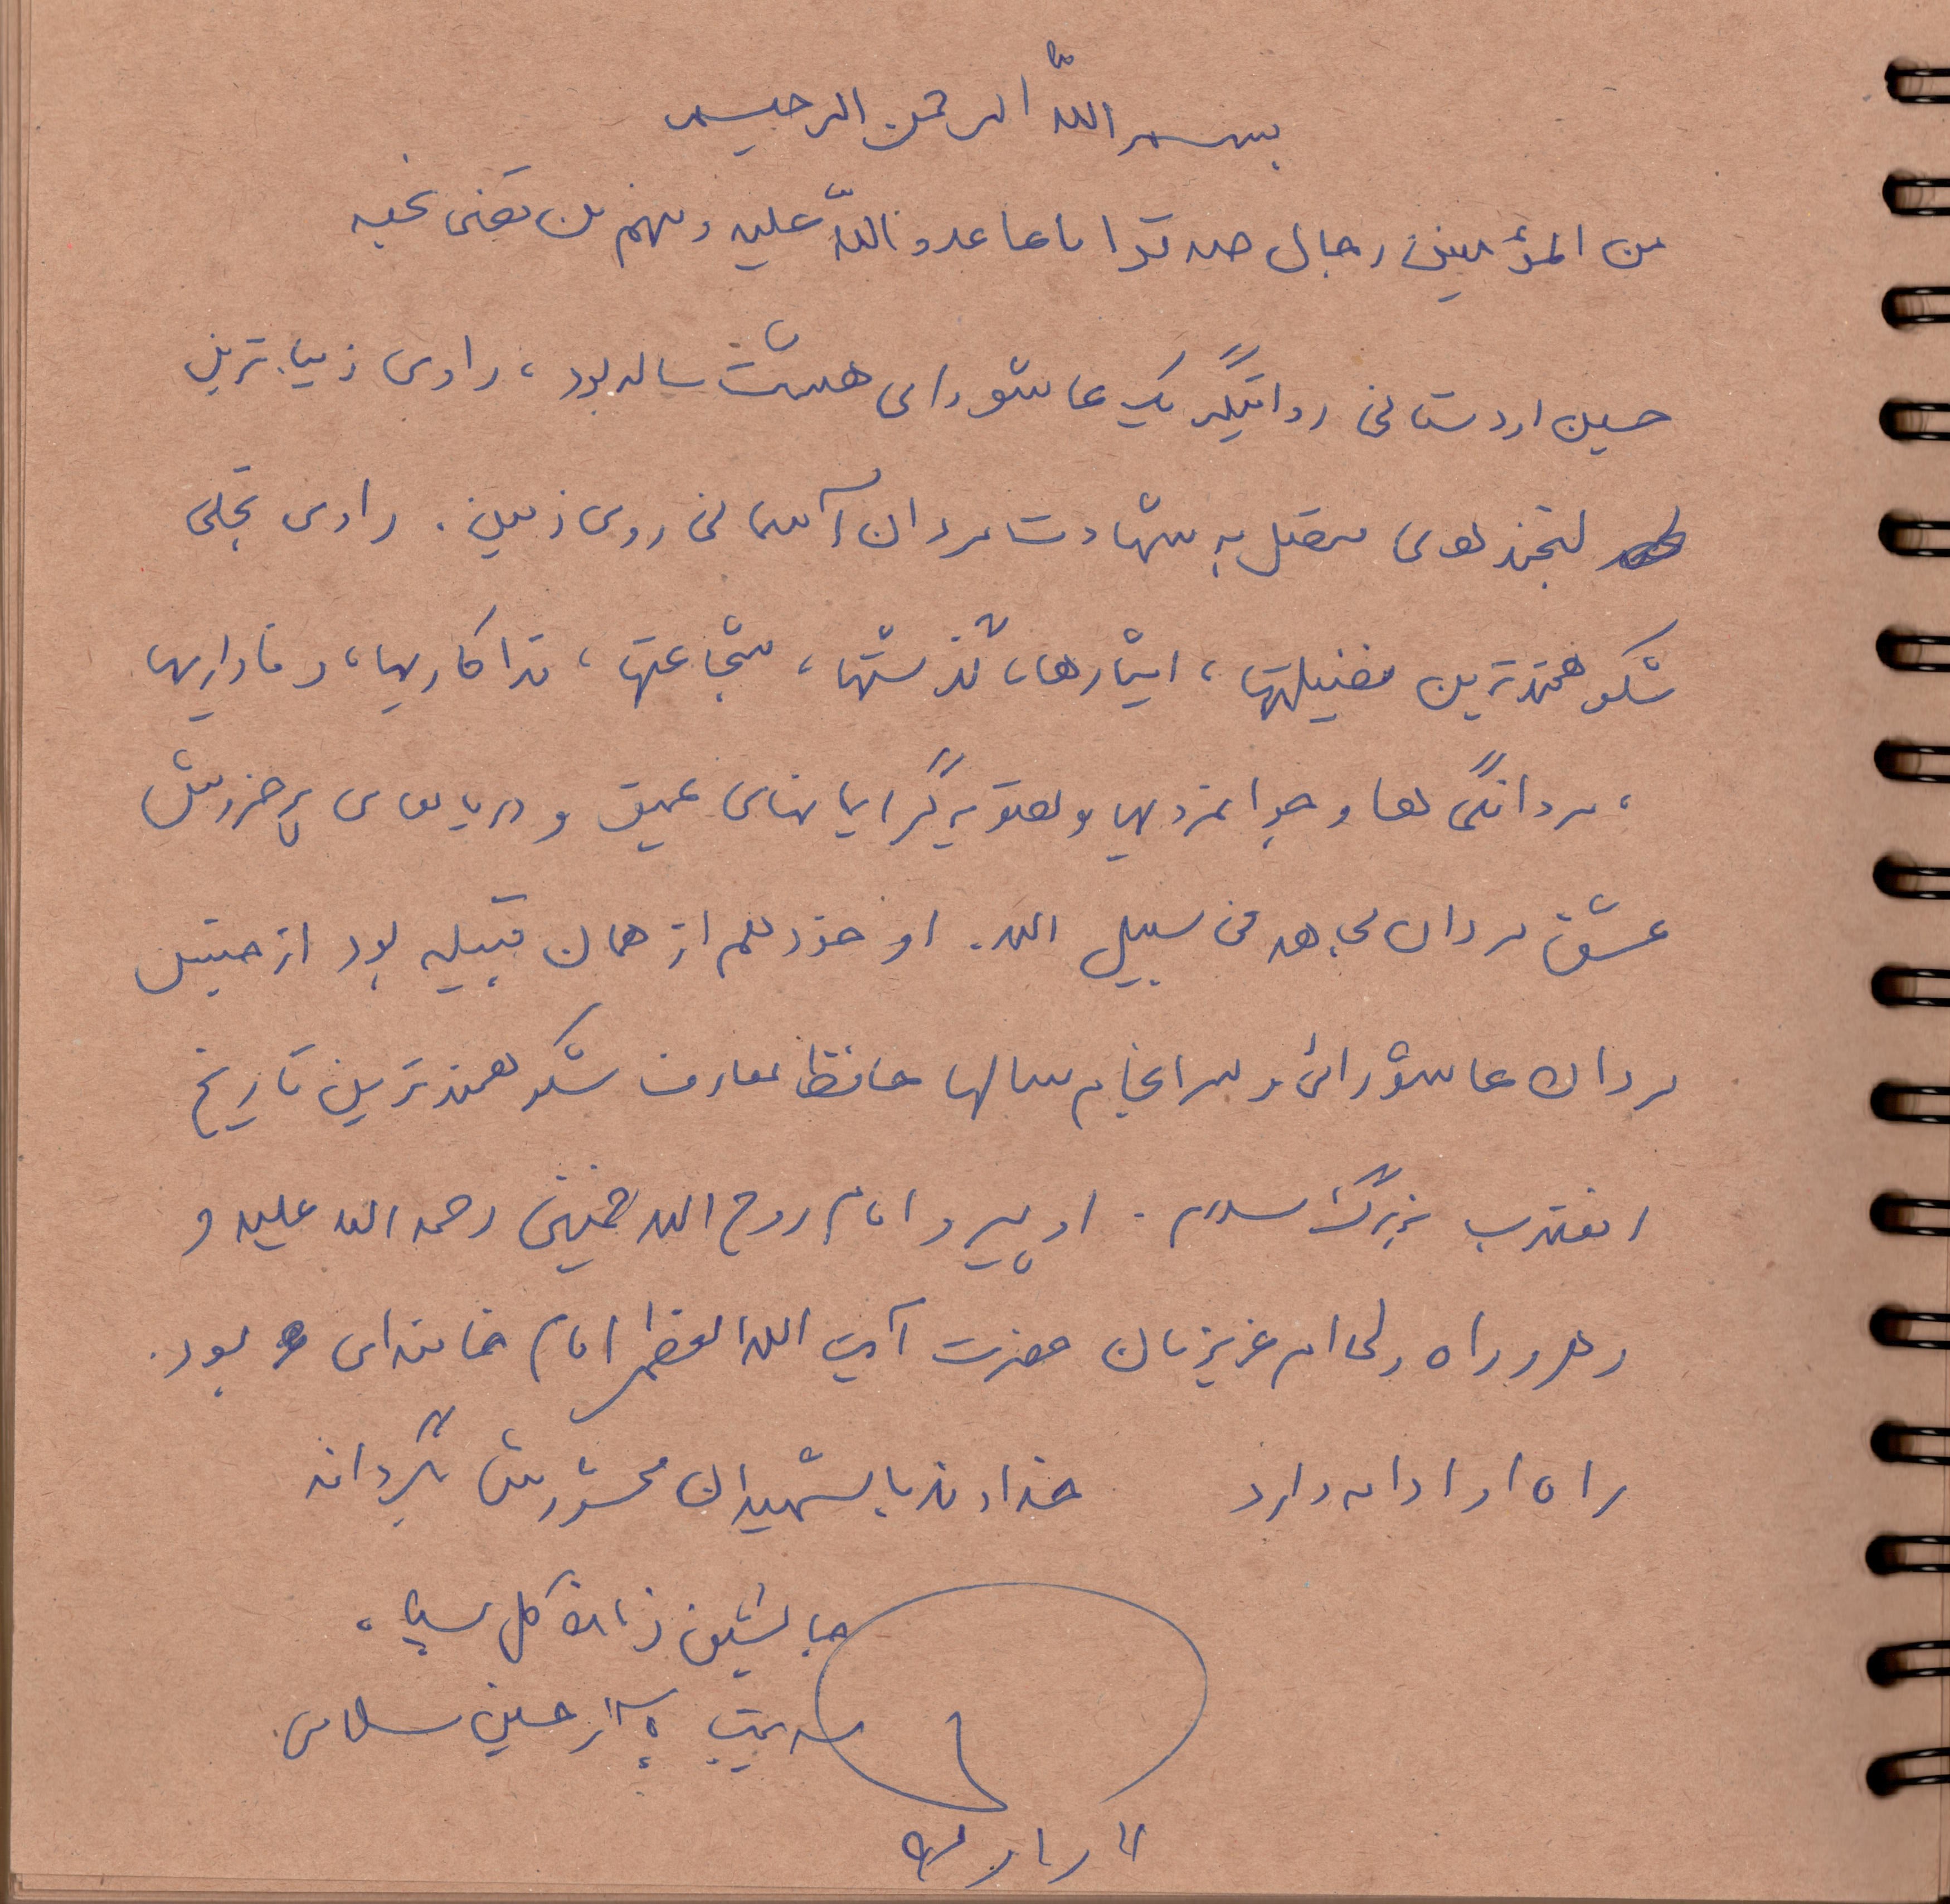 بسم الله الرحمن الرحیم
من المؤمنین رجال صدقوا ما عاهدوالله علیه ومنهم من قضی نحبه
حسین اردستانی روایتگر یک عاشورای هشت ساله بود، راوی زیباترین
لبخندهای متصل به شهادت مردان آسمانی روی زمین. راوی تجلی
شکوهمندترین فضیلتها، ایثارها، گذشتها، شجاعتها، فداکاریها، وفاداریها
، مردانگی ها و جوانمردیها و تصویرگر ایمانهای عمیق و دریاهای پرخروش
عشق مردان مجاهد فی سبیل الله. او خود هم از همان قبیله بود از جنس
مردان عاشورائی و سرانجام سالها حافظ معارف شکوهمندترین تاریخ
بزرگ اسلام. او پیرو امام روح الله خمینی رحمه الله علیه و
رهرو راه ولی امر عزیزمان حضرت آیت الله العظمی امام خامنه‌ای بود.
راه او ادامه دارد خداوند با شهیدان محشورش بگرداند
جانشین فرمانده کل سپاه
سرتیپ پاسدار حسین سلامی